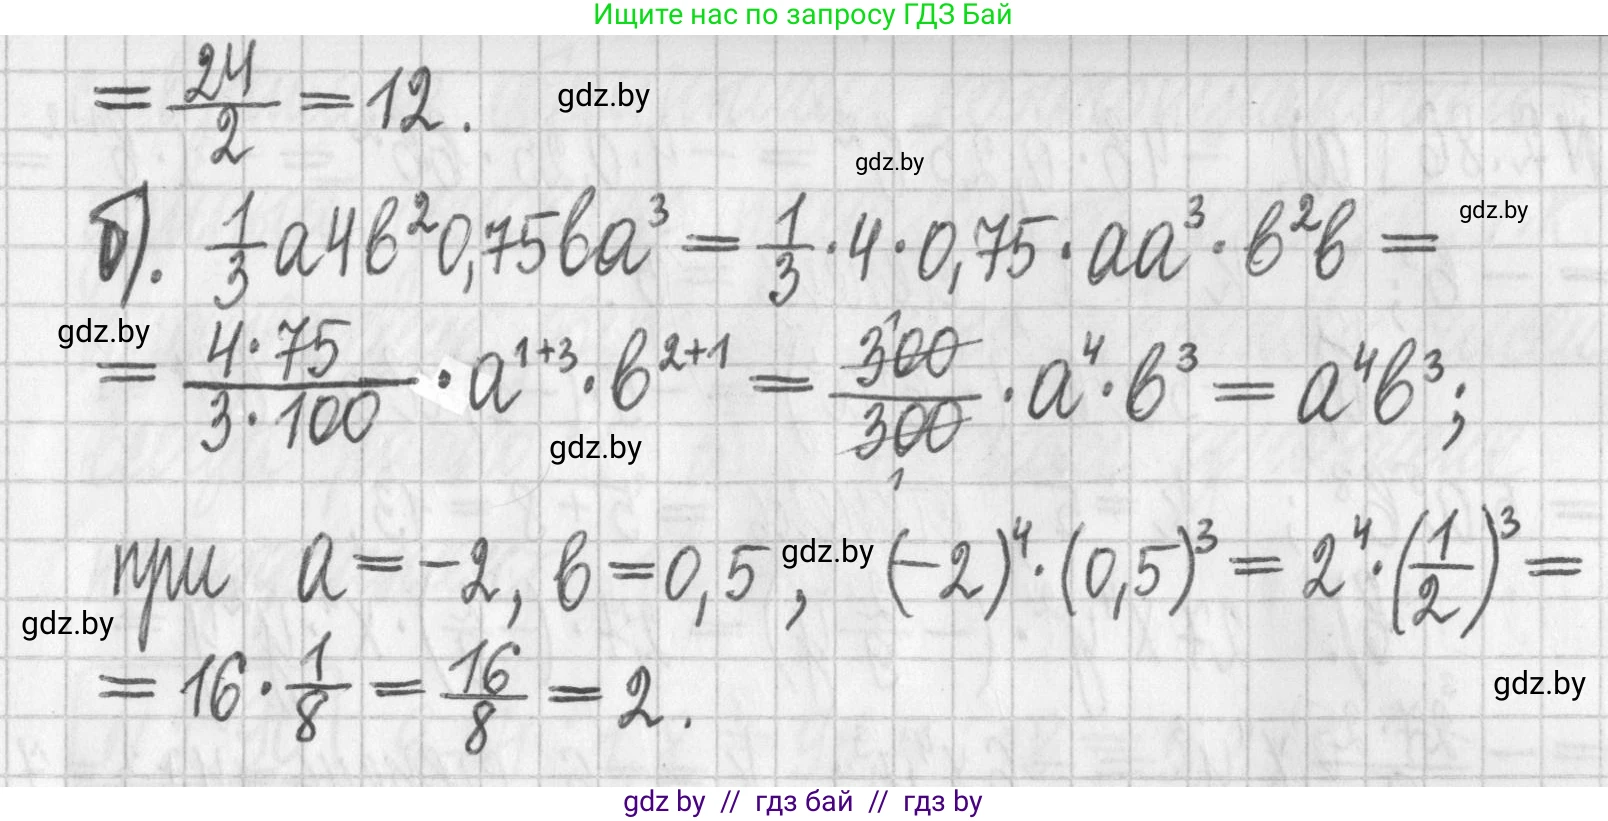 Ищите нас по запросу ГДЗ Бай
= 24/2 = 12. gdz.by
gdz.by
б). 1/3 a4b²0,75ba³ = 1/3 · 4 · 0,75 · aa³ · b²b = gdz.by
gdz.by
= (4·75)/(3·100) · a¹⁺³ · b²⁺¹ = 300/300 · a⁴ · b³ = a⁴b³;
1
1
gdz.by
при a = -2, b = 0,5, gdz.by (-2)⁴ · (0,5)³ = 2⁴ · (1/2)³ =
gdz.by
= 16 · 1/8 = 16/8 = 2. gdz.by
gdz by // гдз бай // гдз by